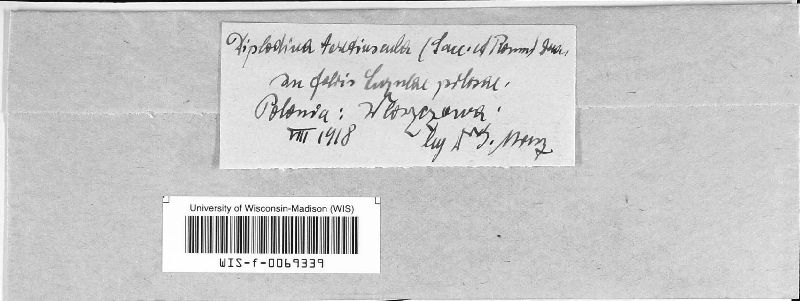 Diplodina teretiuscula (Sacc. et Roum)
in foliis Luzulae pilosae.
Polonia: Włoszczowa.
VIII 1918 leg Dr
University of Wisconsin-Madison (WIS)
WIS-f-0069339